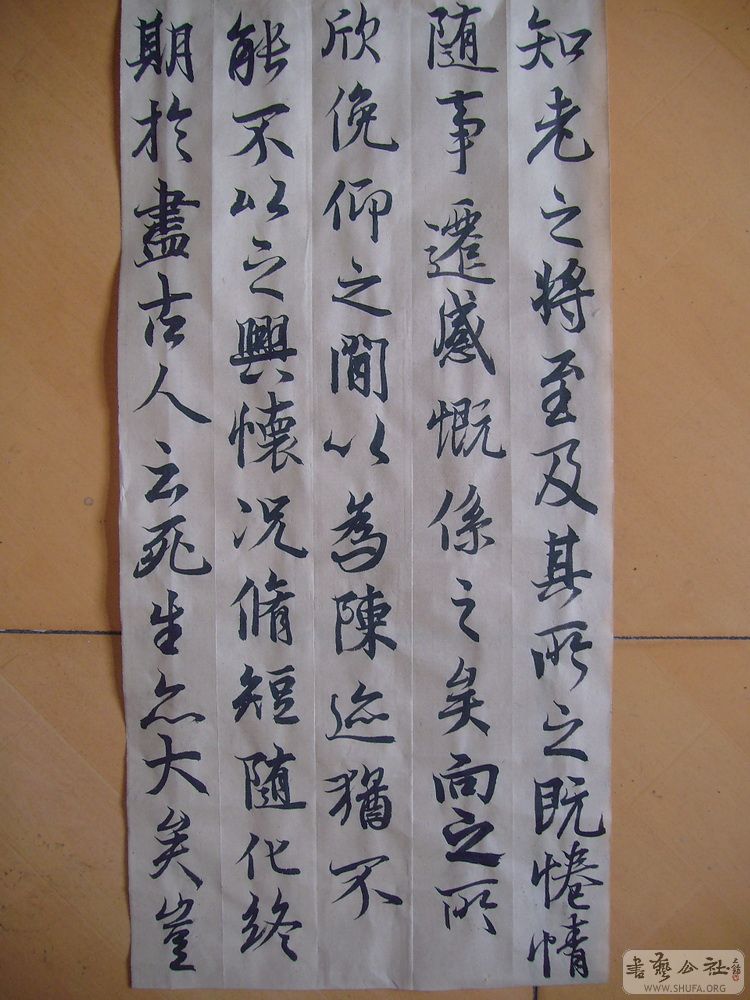 知老之将至及其所之既惓情
随事遷感慨係之矣向之所
欣俛仰之間以為陳迹猶不
能不以之興懷况脩短随化終
期於盡古人云死生亦大矣豈
書藝公社
WWW.SHUFA.ORG